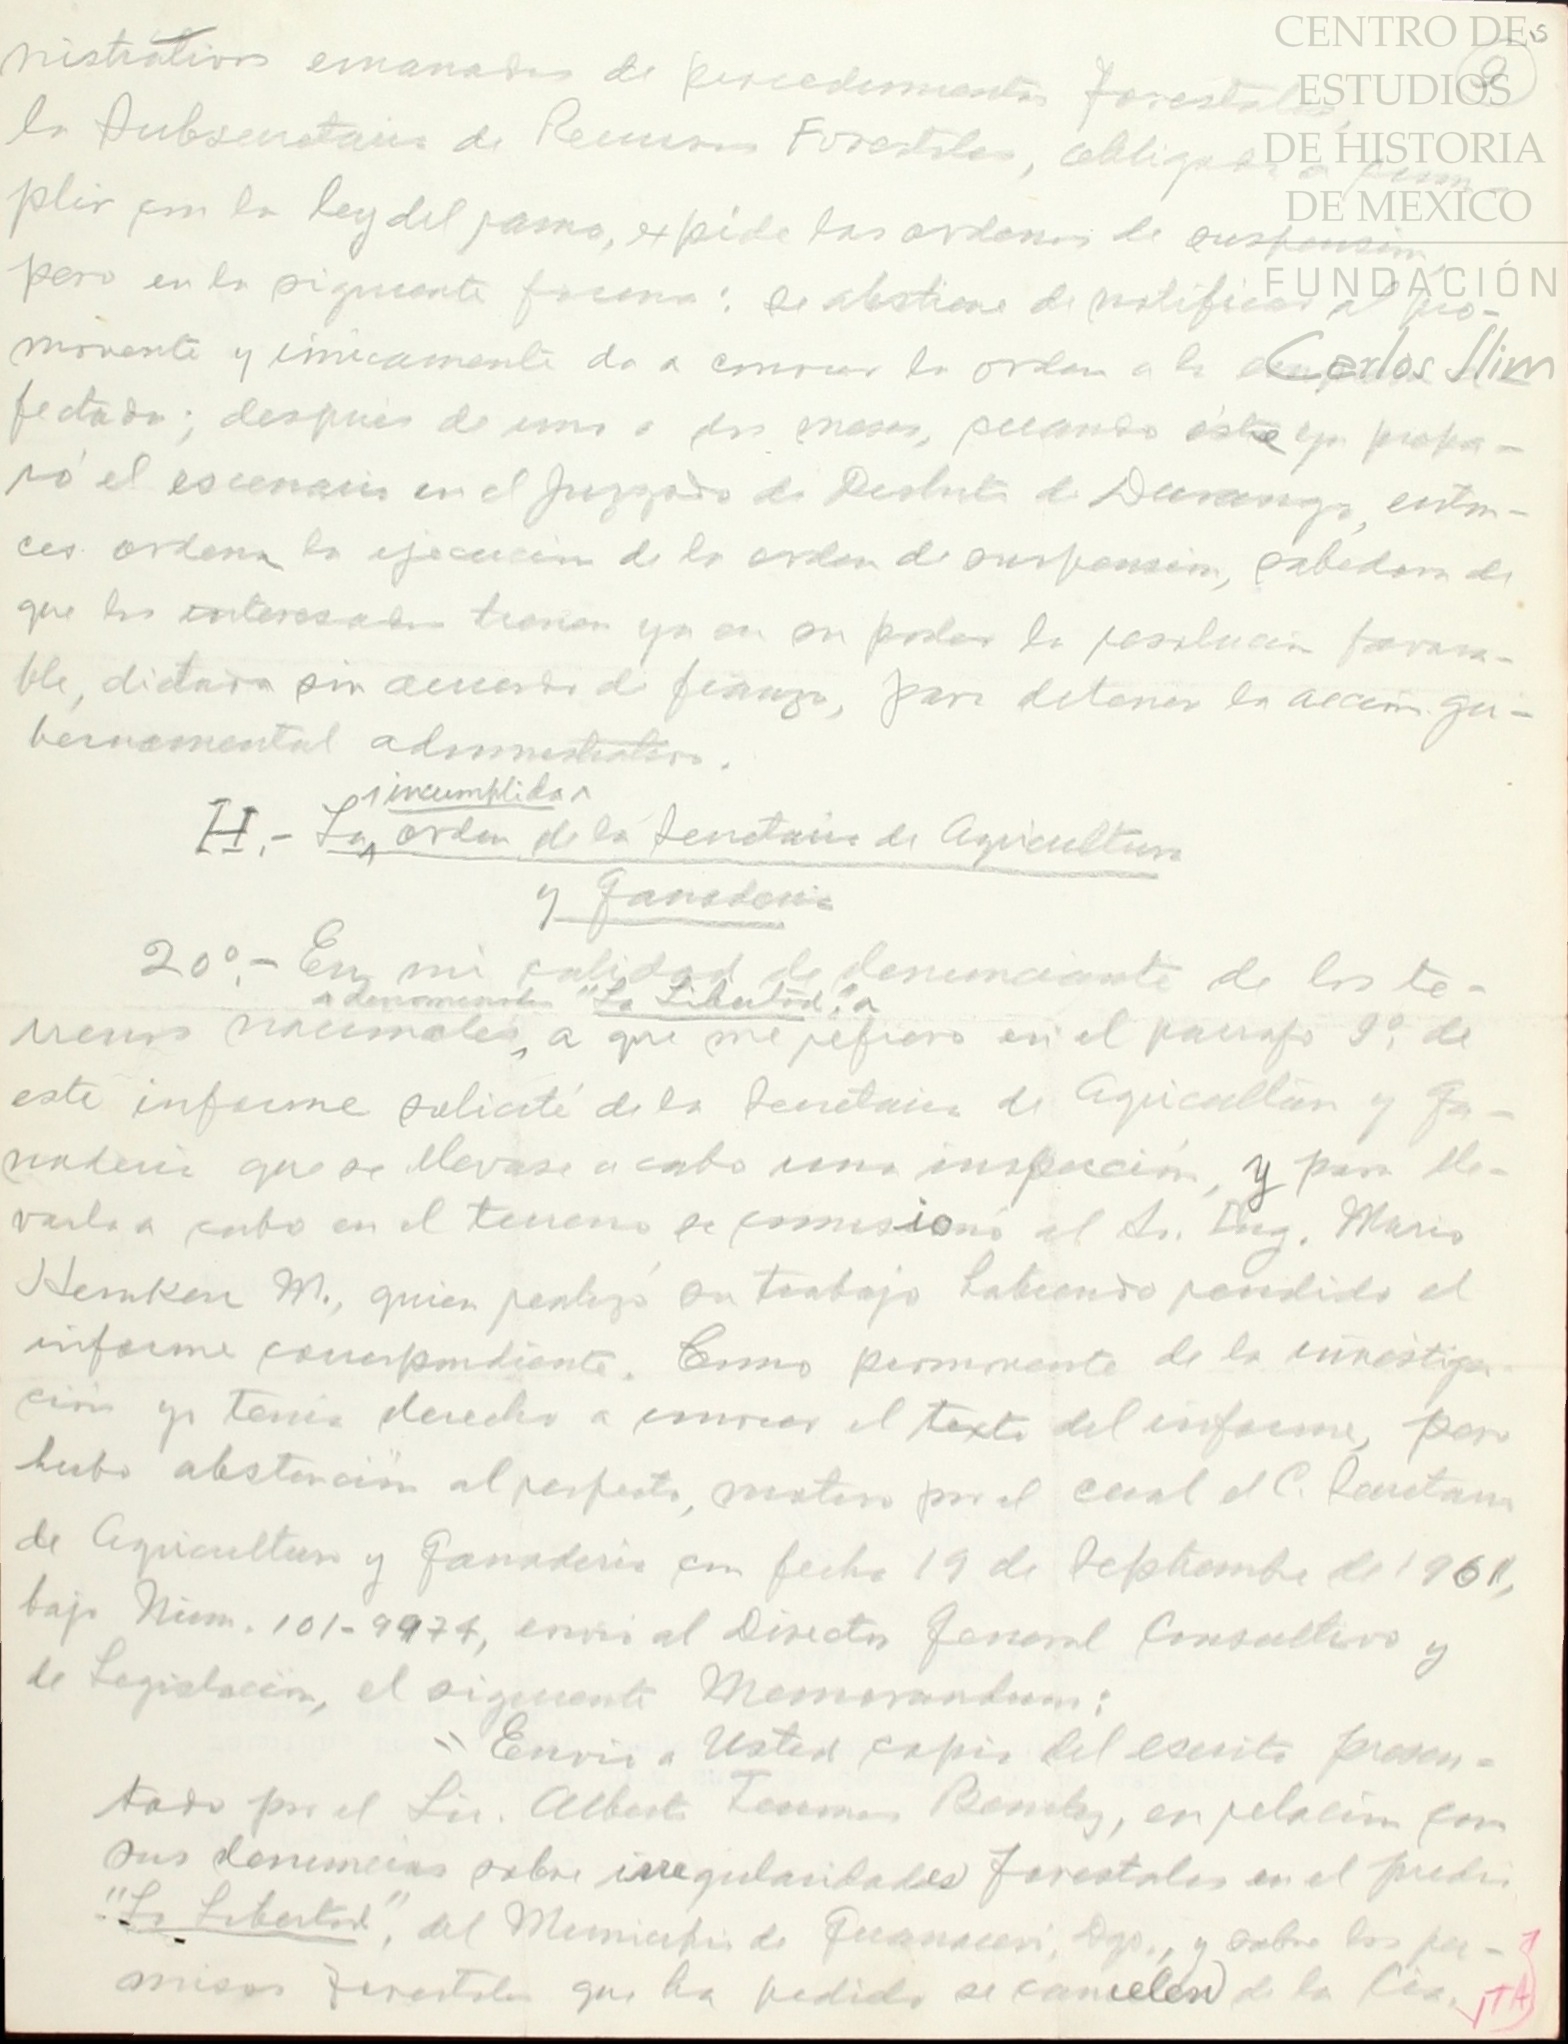 CENTRO DE
ESTUDIOS
DE HISTORIA
DE MEXICO
FUNDACIÓN
Carlos Slim
nistrativos emanados de procedimientos forestales,
la Subsecretaria de Recursos Forestales, obligada a cum-
plir con la ley del ramo, expide las ordenes de suspensión,
pero en la siguiente forma: se abstiene de notificar al pro-
movente y únicamente da a conocer la orden a la
fectada; después de uno o dos meses, cuando ésta ya prepa-
ró el escenario en el Juzgado de Distrito de Durango, enton-
ces ordena la ejecución de la orden de suspensión, sabedora de
que los interesados tienen ya en su poder la resolución favora-
ble, dictada sin acuerdo de fianza, para detener la acción gu-
bernamental administrativa.
incumplida
H.- La orden de la Secretaria de Agricultura
y Ganaderia
20°.- En mi calidad de denunciante de los te-
denominados "La Libertad",
rrenos nacionales, a que me refiero en el parrafo 9°. de
este informe solicité de la Secretaria de Agricultura y Ga-
naderia que se llevase a cabo una inspección, y para lle-
varla a cabo en el terreno se comisionó al Sr. Ing. Mario
Hemken M., quien realizó su trabajo habiendo rendido el
informe correspondiente. Como promovente de la investiga-
ción yo tenia derecho a conocer el texto del informe, pero
hubo abstención al respecto, motivo por el cual el C. Secretario
de Agricultura y Ganaderia con fecha 19 de Septiembre de 1961,
bajo Núm. 101-9974, envió al Director General Consultivo y
de Legislación, el siguiente Memorandum:
"Envio a Usted copia del escrito presen-
tado por el Lic. Alberto Terrones Benitez, en relación con
sus denuncias sobre irregularidades forestales en el predio
"La Libertad", del Municipio de Guanacevi, Dgo., y sobre los per-
misos forestales que ha pedido se cancelen de la Cia.